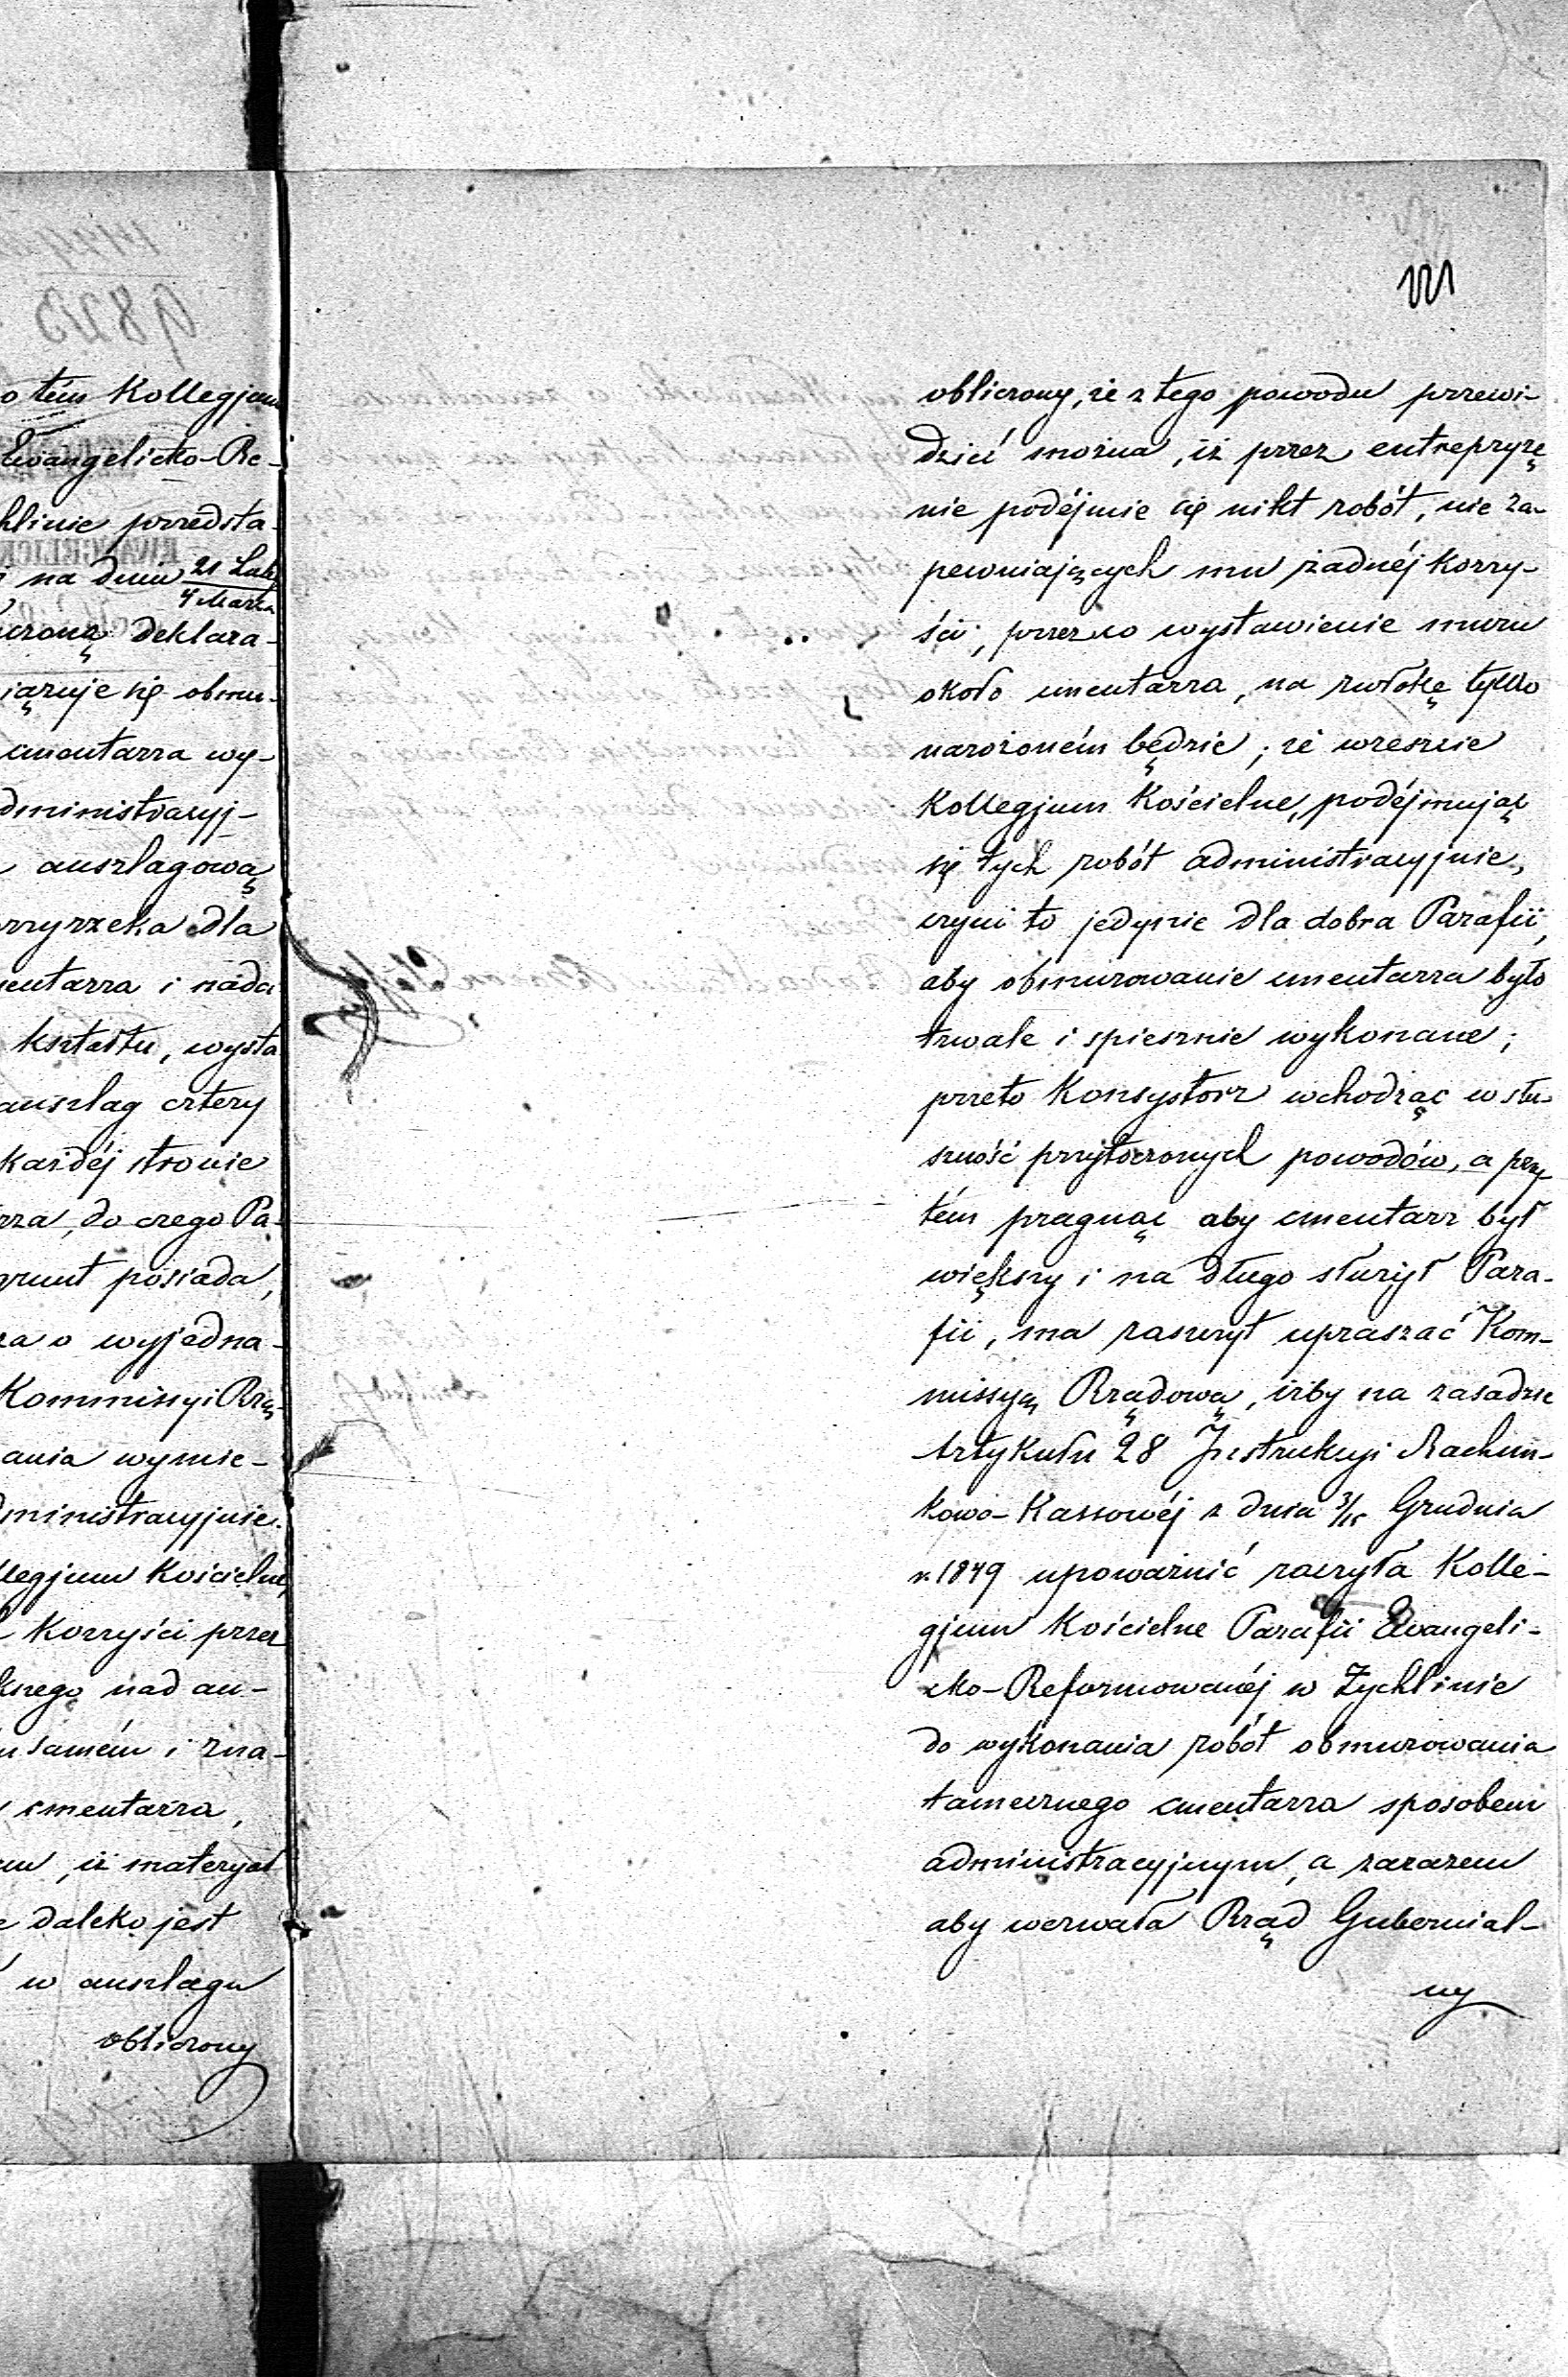 o tém Kollegjum
Ewangelicko-Re-
chlinie przedsta-
na dniu 21 Lut
4 Marca
czoną deklara-
iązuje się obmu-
cmentarza wy-
dministracyj-
auszlagową
przyrzeka dla
mentarza i nada
kształtu, wysta
auszlag cztery
każdéj stronie
rza, do czego Pa-
grunt posiada,
za o wyjedna-
Kommissyi Rzą-
ania wymie-
dministracyjnie.
llegjum Kościelne,
korzyści przez
knego nad au-
samém i zna-
cmentarza,
em, iż materyał
daleko jest
w auszlagu
obliczony
obliczony, że z tego powodu przewi-
dzieć można, iż przez entrepryzę
nie podéjmie się nikt robót, nie za-
pewniających mu żadnéj korzy-
ści; przez co wystawienie muru
około cmentarza, na zwłokę tylko
narożoném będzie; że wreszcie
Kollegjum Kościelne, podéjmując
się tych robót administracyjnie,
czyni to jedynie dla dobra Parafii,
aby obmurowanie cmentarza było
trwale i spiesznie wykonane;
przeto Konsystorz wchodząc w słu-
szność przytoczonych powodów, a przy
tém pragnąc aby cmentarz był
większy i na długo służył Para-
fii, ma zaszczyt upraszać Kom-
missyą Rządową, iżby na zasadzie
Artykułu 28 Instrukcyi Rachun-
kowo-Kassowéj z dnia 3/15 Grudnia
r. 1849 upoważnić raczyła Kolle-
gjum Kościelne Parafii Ewangeli-
cko-Reformowanéj w Żychlinie
do wykonania robót obmurowania
tamecznego cmentarza sposobem
administracyjnym, a zarazem
aby wezwała Rząd Gubernial-
ny